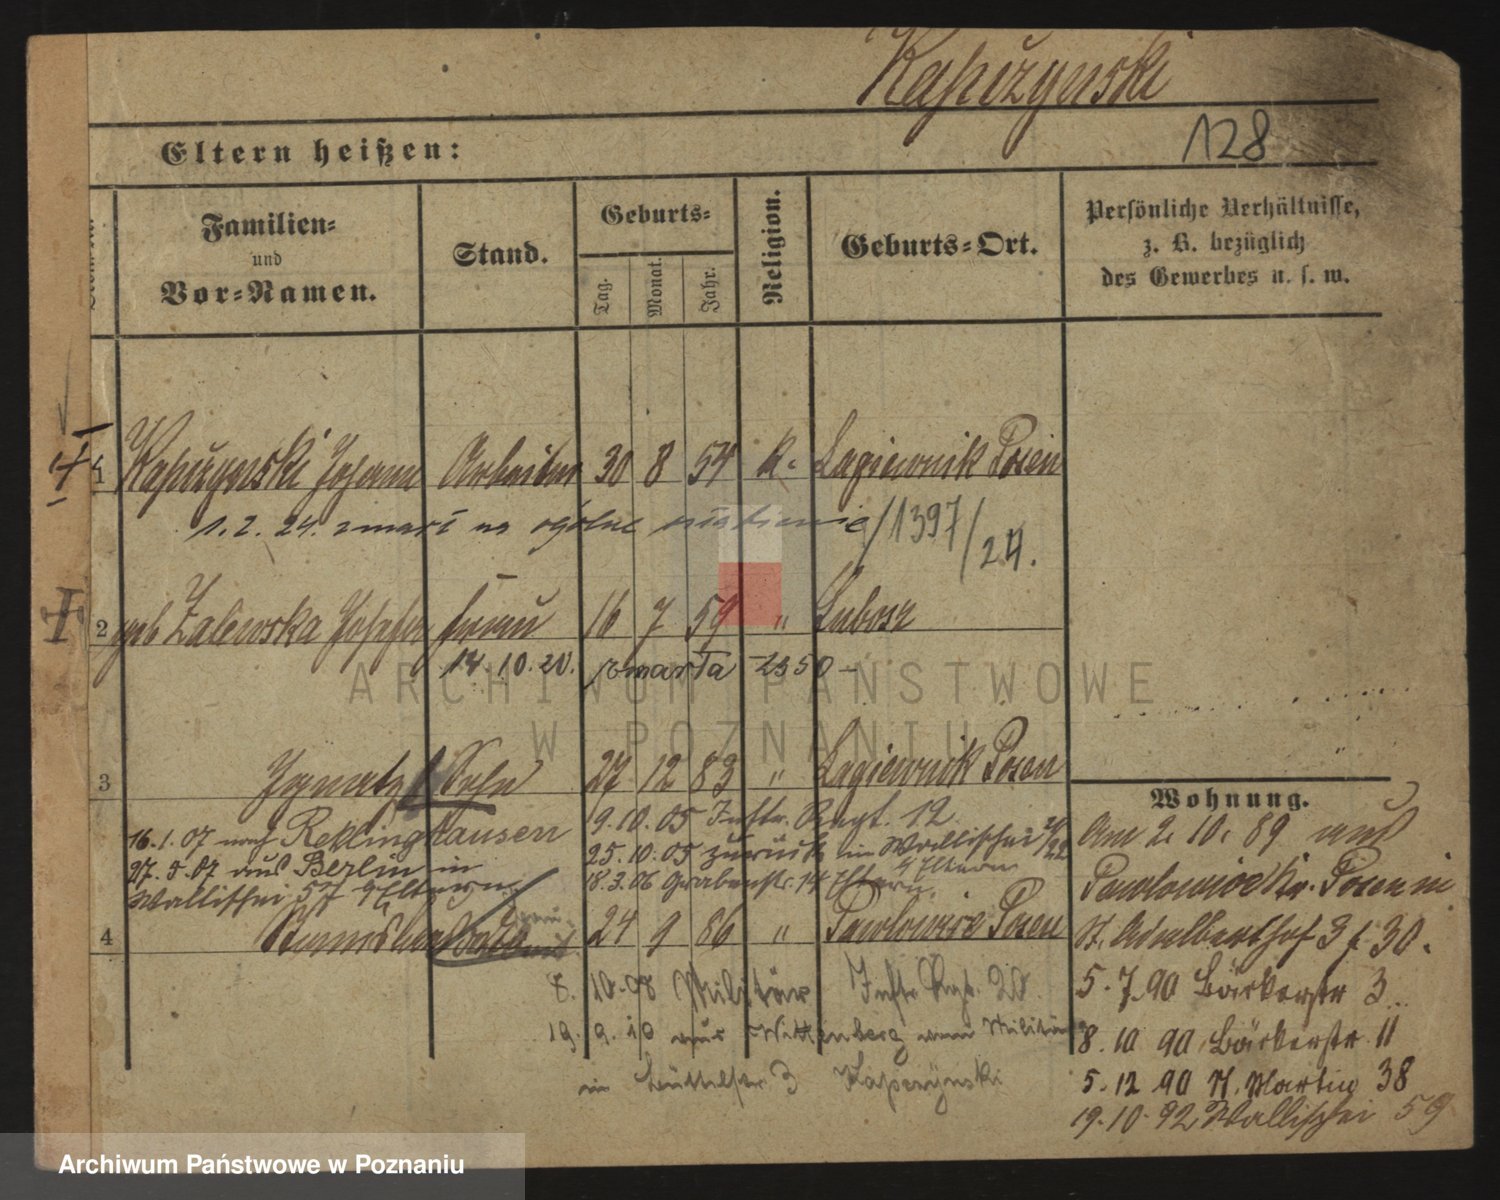 Kapczynski
128
Eltern heißen:
Familien- und Vor-Namen.
Stand.
Geburts-
Tag.
Monat.
Jahr.
Religion.
Geburts-Ort.
Persönliche Verhältnisse,
z. B. bezüglich
des Gewerbes u. s. w.
1 Kapczynski Johann Arbeiter 30 8 54 k. Lagiewnik Posen
1. 2. 24. zmarł na ogólne /1397/24.
2 geb Zalewska Josefa Frau 16 7 59 " Lubosz
14. 10. 20. zmarła 2350
3 Ignatz Sohn 27 12 83 " Lagiewnik Posen
9. 10. 05 Inftr. Regt. 12.
16. 1. 07 nach Recklinghausen
25. 10. 05 zurück in Wallischei
27. 5. 07 aus Berlin in
18. 3. 06 Grabenstr. 14 Eltern.
Wallischei 57 Eltern
4 Stanislaus 24 9 86 " Pawlowice Posen
8. 10. 08 Militär Inftr. Rgt. 20.
19. 9. 10 aus Wittenberg vom Militär
in Büttelstr. 3 Kapczynski
Wohnung.
Am 2. 10. 89 aus
Pawlowice Kr. Posen in
St. Adalberthof 3 f. 30.
5. 7. 90 Bäckerstr 3
8. 10 90 Bäckerstr. 11
5. 12 90 St. Martin 38
19. 10. 92 Wallischei 59
ARCHIWUM PAŃSTWOWE
W POZNANIU
Archiwum Państwowe w Poznaniu